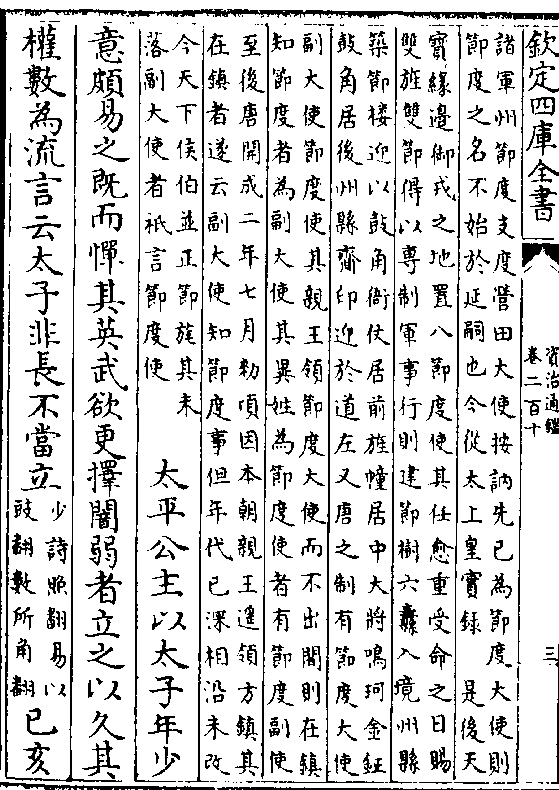 欽定四庫全書
資治通鑑
卷二百十
三
諸軍州節度支度營田大使按訥先已為節度大使則
節度之名不始於延嗣也今從太上皇實録 是後天
寳緣邊御戎之地置八節度使其任愈重受命之日賜
雙旌雙節得以專制軍事行則建節樹六纛入境州縣
築節樓迎以鼓角衙仗居前旌幢居中大將鳴珂金鉦
鼓角居後州縣齎印迎於道左又唐之制有節度大使
副大使節度使其親王領節度大使而不出閤則在鎮
知節度者為副大使其異姓為節度使者有節度副使
至後唐開成二年七月勅頃因本朝親王遥領方鎮其
在鎮者遂云副大使知節度事但年代已深相沿未改
今天下侯伯並正節旄其未
落副大使者祇言節度使
太平公主以太子年少
意頗易之既而憚其英武欲更擇闇弱者立之以久其
權數為流言云太子非長不當立
少詩照翻易以
豉翻數所角翻
已亥